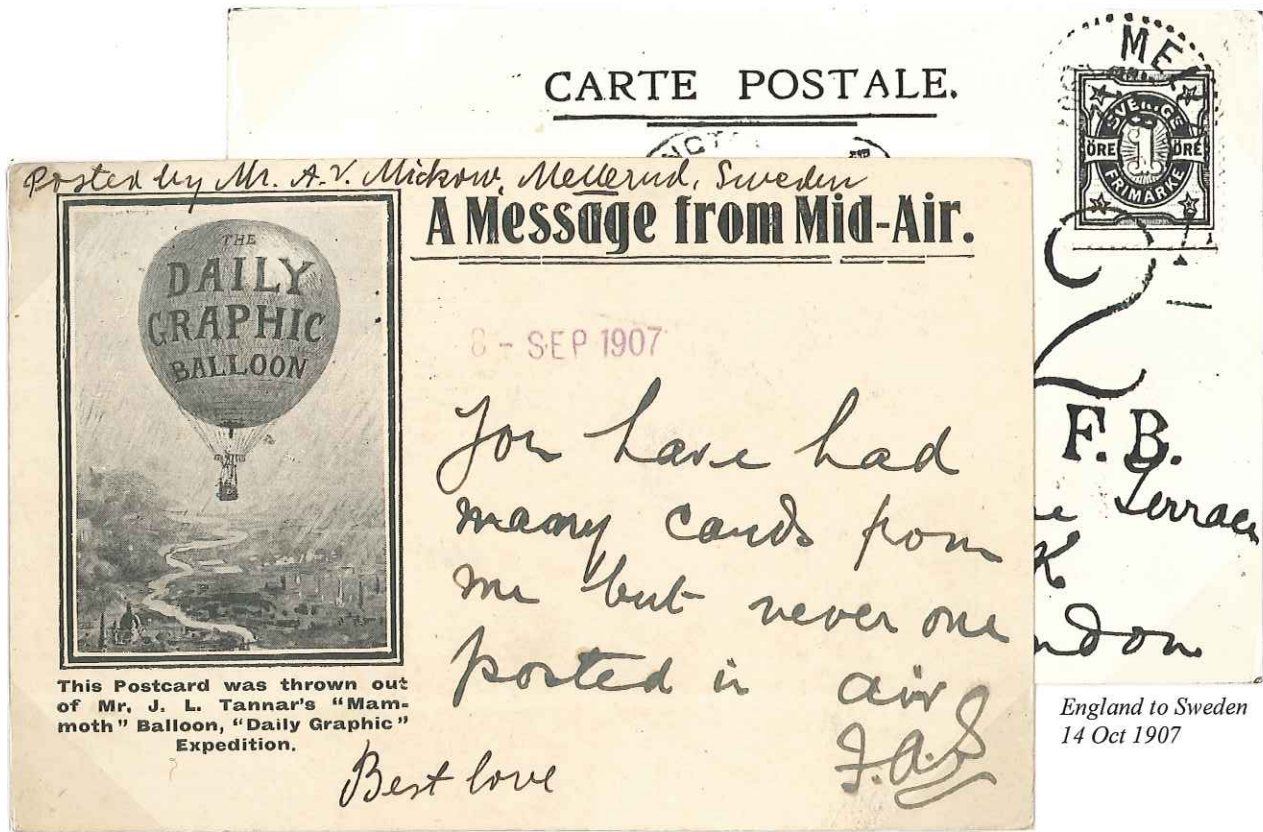 CARTE POSTALE.
MEL
SVERIGE
ÖRE 1 ÖRE
FRIMÄRKE
2
F. B.
Terrace
K
ndon
Posted by Mr. A. V. Mickow, Mellerud, Sweden
A Message from Mid-Air.
THE
DAILY
GRAPHIC
BALLOON
8 - SEP 1907
You have had
many cards from
me but never one
posted in air
F.A.S
This Postcard was thrown out
of Mr. J. L. Tannar's "Mam-
moth" Balloon, "Daily Graphic"
Expedition.
Best love
England to Sweden
14 Oct 1907